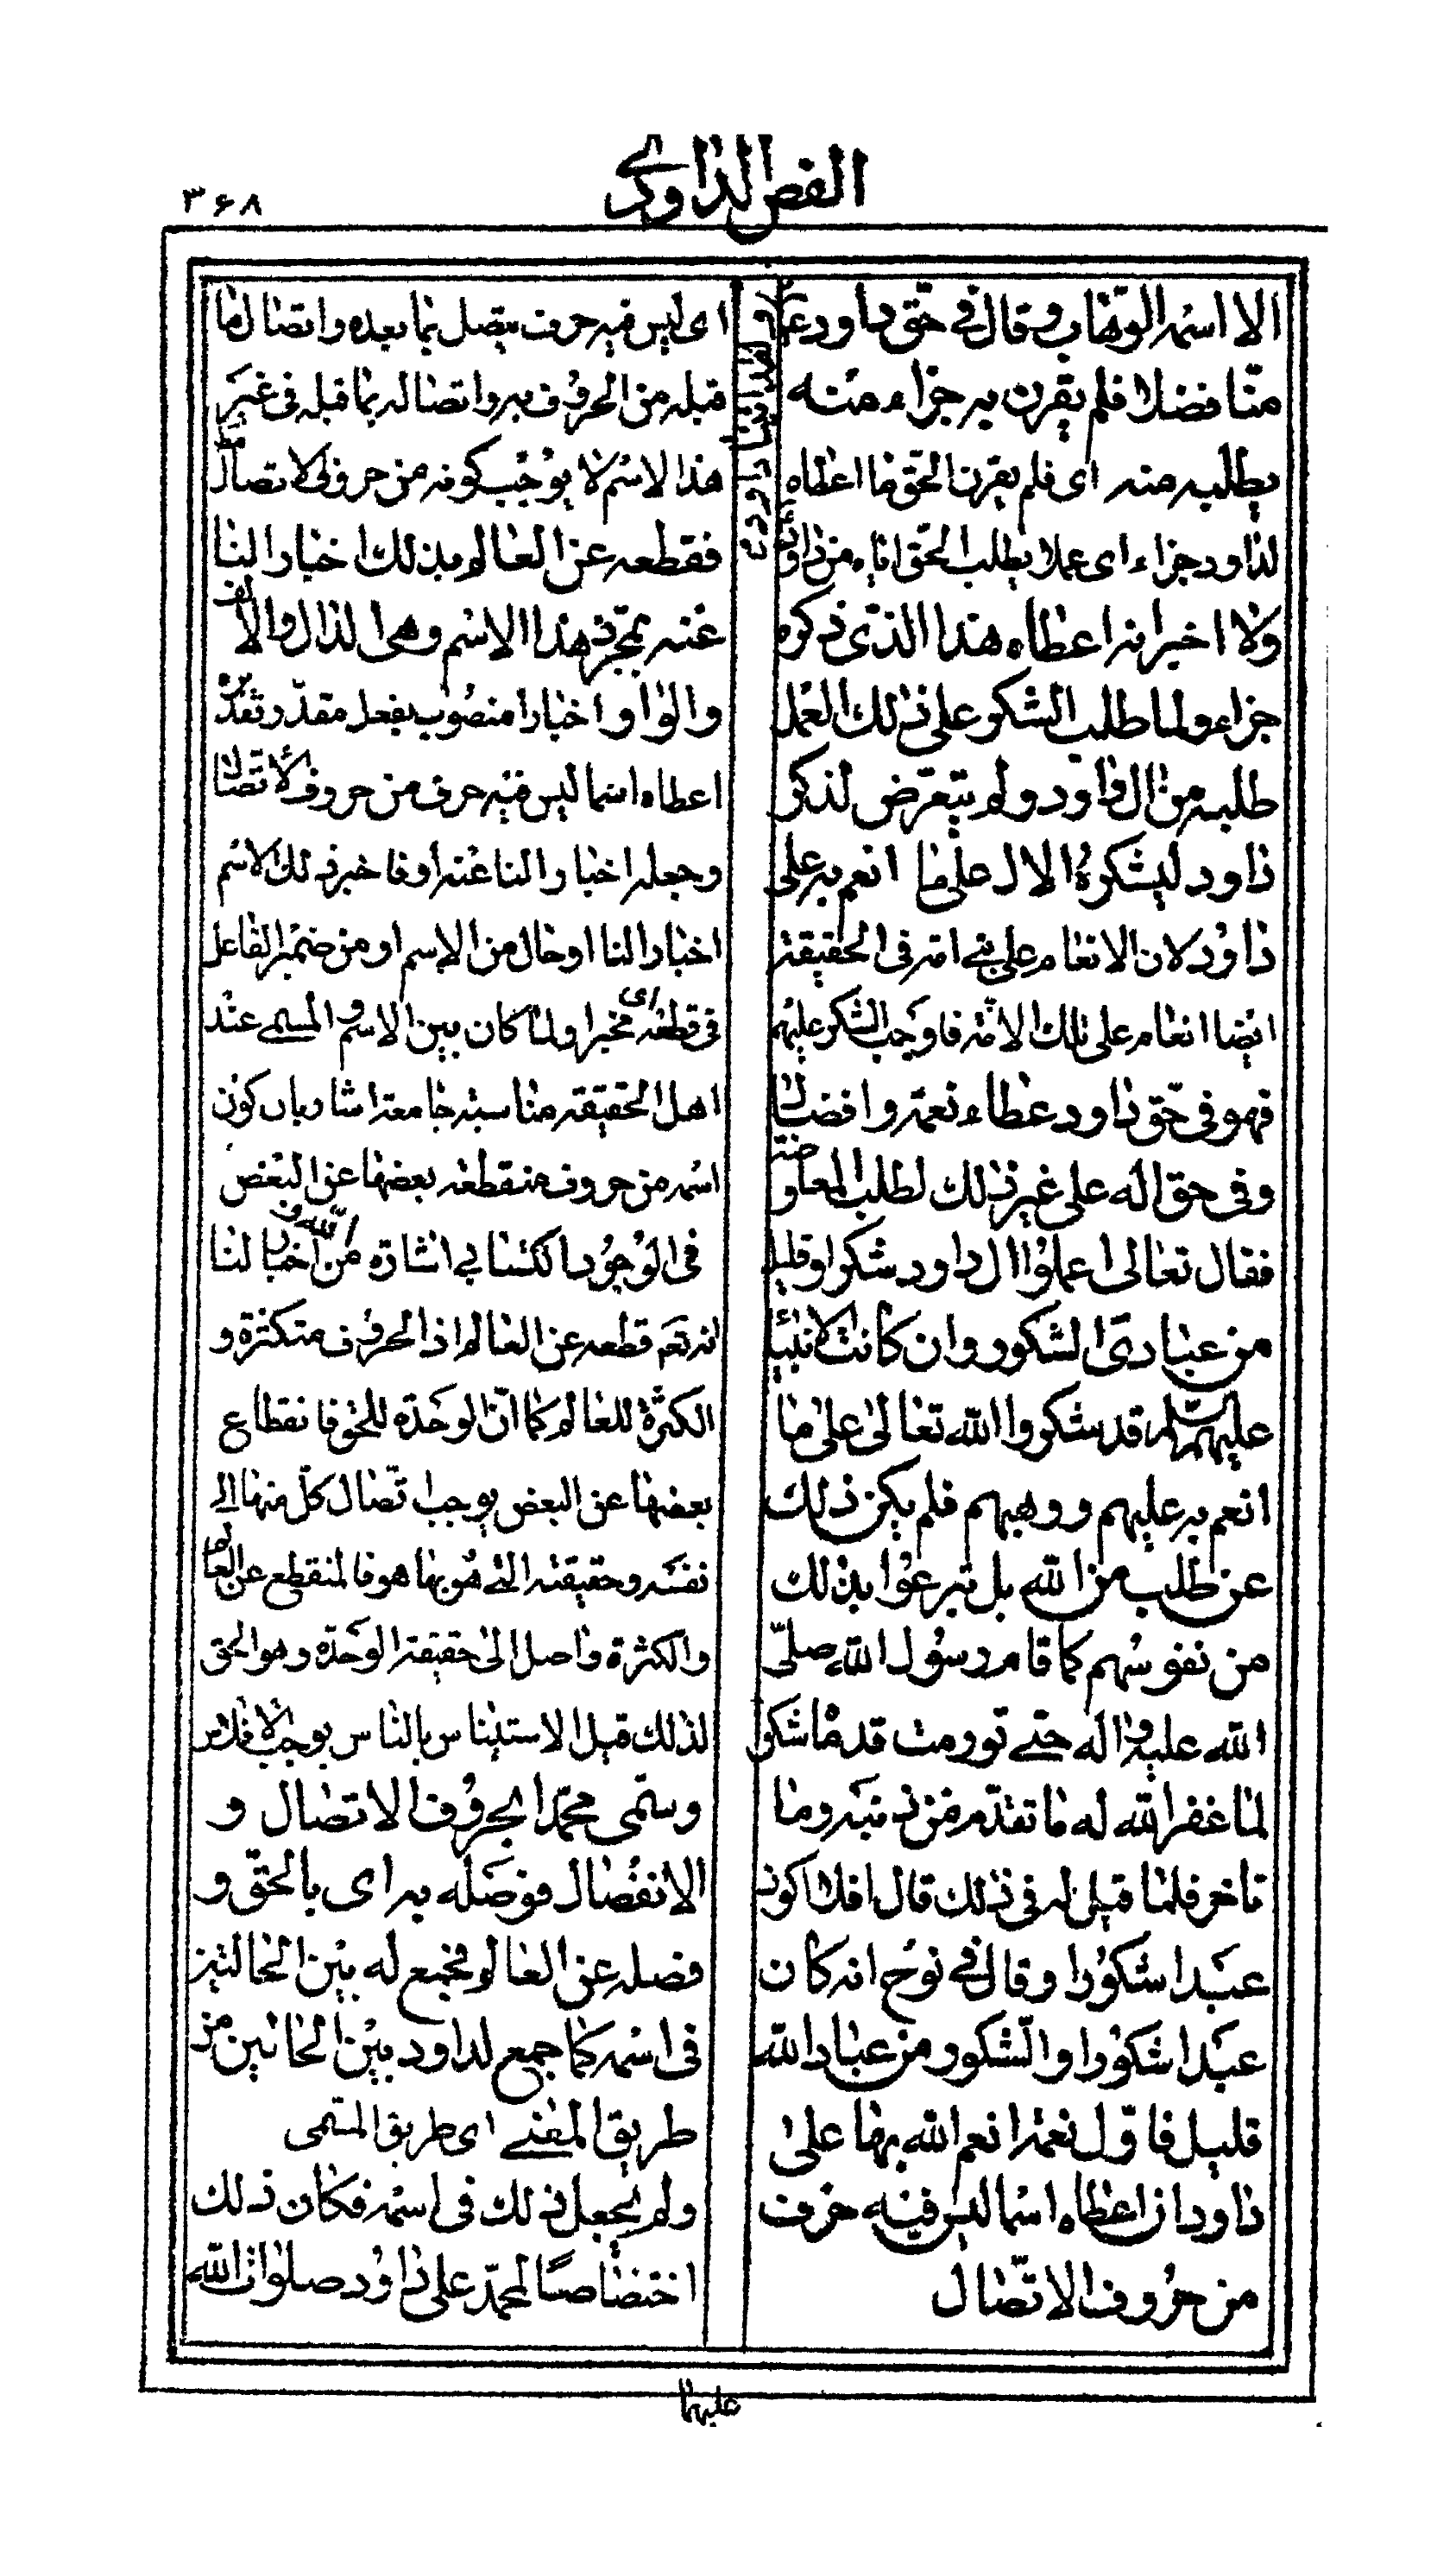 الفص الداودي
۳۶۸
الا اسمه الوهاب وقال في حق داود ع
منا فضلا فلم يقرن به جزاء منه
يطلبه منه اى فلم يقرن الحق ما اعطاه
لداود جزاء اى عملا يطلب الحق اياه من داود
ولا اخبر انه اعطاه هذا الذى ذكره
جزاء ولما طلب الشكر على ذلك العمل
طلبه من ال داود ولم يتعرض لذكر
داود ليشكره الال على ما انعم به على
داود لان الانعام على نبي امة في الحقيقة
ايضا انعام على تلك الامة فاوجب الشكر عليهم
فهو في حق داود عطاء نعمة وافضال
وفي حق اله على غير ذلك لطلب المعاوضة
فقال تعالى اعملوا ال داود شكرا وقليل
من عبادى الشكور وان كانت الانبياء
عليهم السلم قد شكروا الله تعالى على ما
انعم به عليهم ووهبهم فلم يكن ذلك
عن طلب من الله بل تبرعوا بذلك
من نفوسهم كما قام رسول الله صلى
الله عليه واله حتى تورمت قدماه شكرا
لما غفر الله له ما تقدم من ذنبه وما
تاخر فلما قيل له في ذلك قال افلا اكون
عبدا شكورا وقال في نوح انه كان
عبدا شكورا والشكور من عباد الله
قليل فاول نعمة انعم الله بها على
داود ان اعطاه اسما ليس فيه حرف
من حروف الاتصال
اى ليس فيه حرف يتصل بما بعده واتصال ما
قبله من الحروف به واتصاله بما قبله في غير
هذا الاسم لا يوجب كونه من حروف الاتصال
فقطعه عن العالم بذلك اخبارا لنا
عنه بمجرد هذا الاسم وهى الدال والالف
والواو اخبارا منصوب بفعل مقدر تقديره
اعطاه اسما ليس فيه حرف من حروف الاتصال
وجعله اخبارا لنا عنه او فاخبر ذلك الاسم
اخبارا لنا او حال من الاسم او من ضمير الفاعل
في قطعه اى مخبرا ولما كان بين الاسم والمسمى عند
اهل الحقيقة مناسبة جامعة اشار بان كون
اسمه من حروف منقطعة بعضها عن البعض
في الوجود الكتابي اشارة من الله واخبار لنا
انه تعم قطعه عن العالم اذ الحروف متكثرة و
الكثرة للعالم كما ان الوحدة للحق فانقطاع
بعضها عن البعض يوجب اتصال كل منها الى
نفسه وحقيقته التى هو بها هو فالمنقطع عن العالم
والكثرة واصل الى حقيقة الوحدة وهو الحق
لذلك قيل الاستيناس بالناس يوجب الافلاس
وسمى محمدا بحروف الاتصال و
الانفصال فوصله به اى بالحق و
فصله عن العالم فجمع له بين الحالتين
في اسمه كما جمع لداود بين الحالين من
طريق المعنى اى طريق المسمى
ولم يجعل ذلك في اسمه فكان ذلك
اختصاصا لمحمد على داود صلوات الله
عليهما